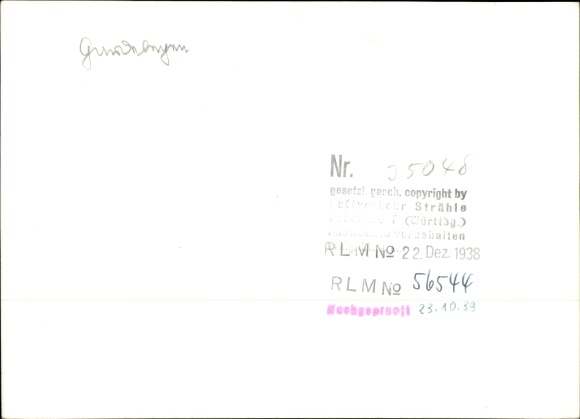 Nr. 35048
gesetzl. gesch. copyright by
Luftverkehr Strähle
(Württbg.)
vorbehalten
RLM № 22. Dez. 1938
RLM № 56544
Nachgeprüft 23.10.39